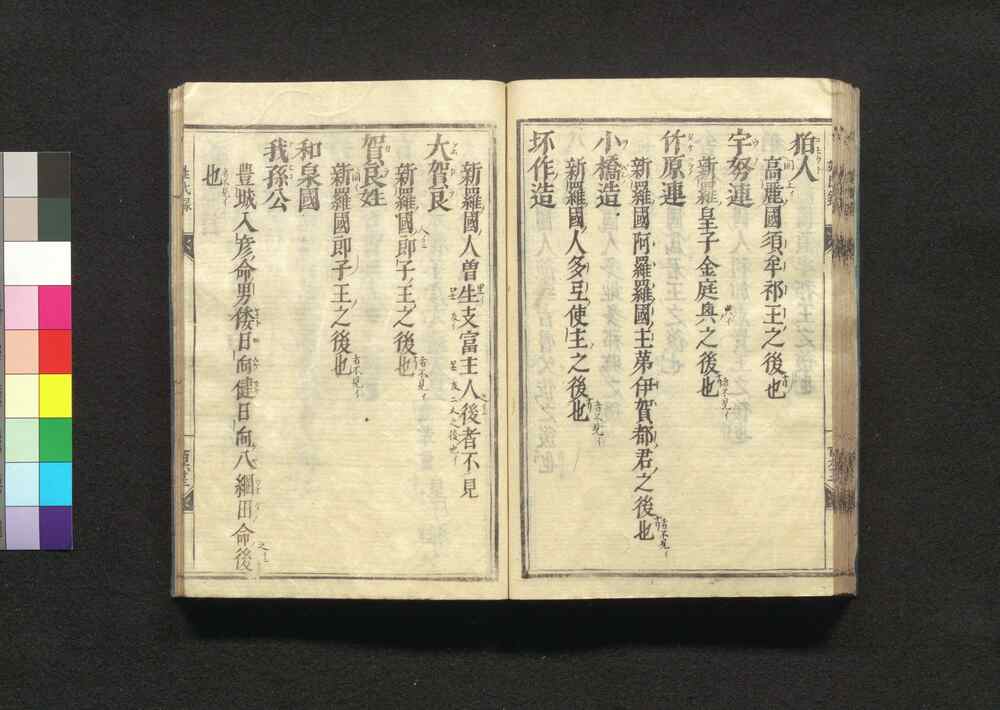 狛人
高麗國須牟祁王之後也
宇努連
新羅皇子金庭興之後也
竹原連
新羅國阿羅羅國主弟伊賀都君之後也
小橋造
新羅國人多弖使主之後也
坏作造
新羅國人曽生支富主人後者不見
大賀良
新羅國郎子王之後也
賀良姓
新羅國郎子王之後也
和泉國
我孫公
豊城入彦命男倭日向健日向八綱田命後
也